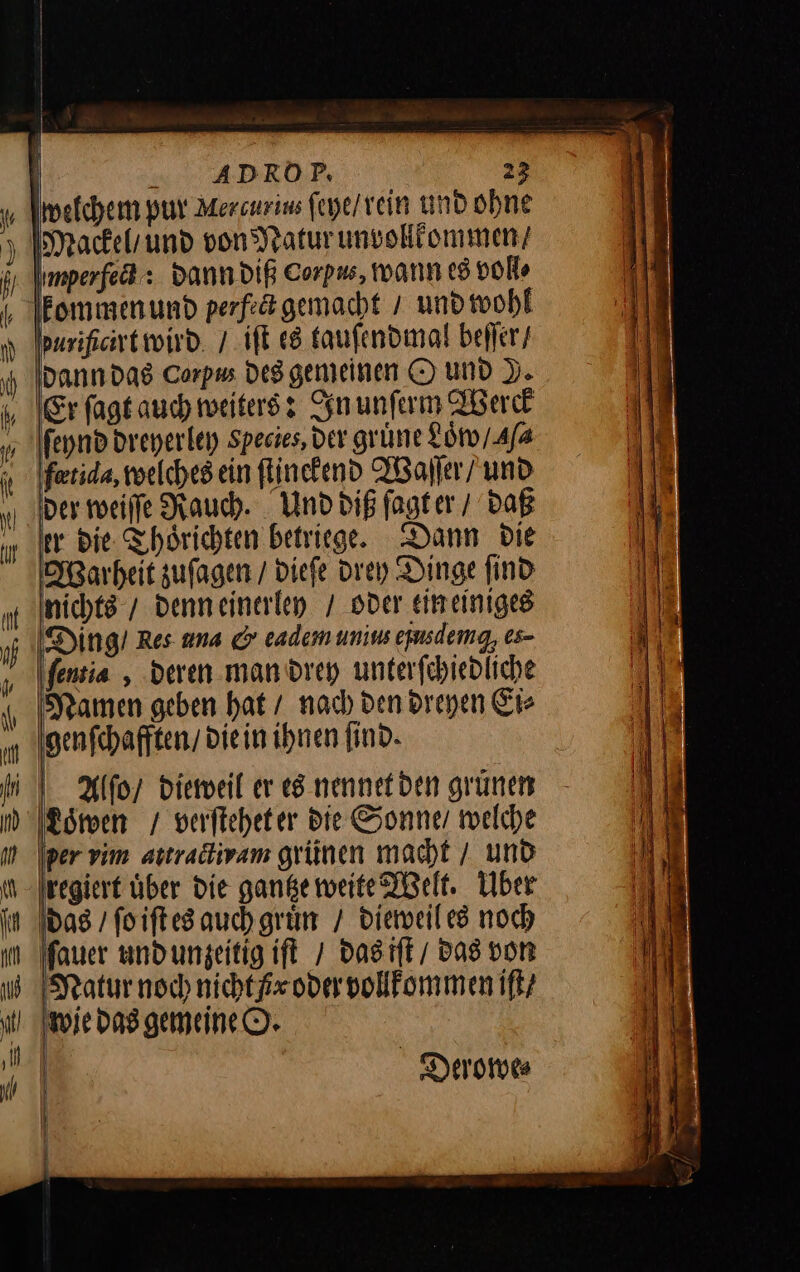 ADROP. 23
welchem pur Mercurius ſeye/ rein und ohne
Mackel/ und von Natur unvollkommen/
imperfect: dann diß Corpus, wann es voll-
kommen und perfect gemacht / und wohl
purificirt wird / iſt es tauſendmal beſſer/
dann das Corpus des gemeinen ☉ und ☽.
Er ſagt auch weiters: In unſerm Werck
ſeynd dreyerley Species, der gruͤne Loͤw/ Aſa
fœtida, welches ein ſtinckend Waſſer/ und
der weiſſe Rauch. Und diß ſagt er / daß
er die Thoͤrichten betriege. Dann die
Warheit zuſagen / dieſe drey Dinge ſind
nichts / denn einerley / oder ein einiges
Ding/ Res una & eadem unius ejusdemq, es-
ſentia , deren man drey unterſchiedliche
Namen geben hat / nach den dreyen Ei-
genſchafften/ die in ihnen ſind.
Alſo/ dieweil er es nennet den gruͤnen
Loͤwen / verſtehet er die Sonne/ welche
per vim attractivam gruͤnen macht / und
regiert uͤber die gantze weite Welt. Uber
das / ſo iſt es auch gruͤn / dieweil es noch
ſauer und unzeitig iſt / das iſt / das von
Natur noch nicht fix oder vollkommen iſt/
wie das gemeine ☉.
Derowe-